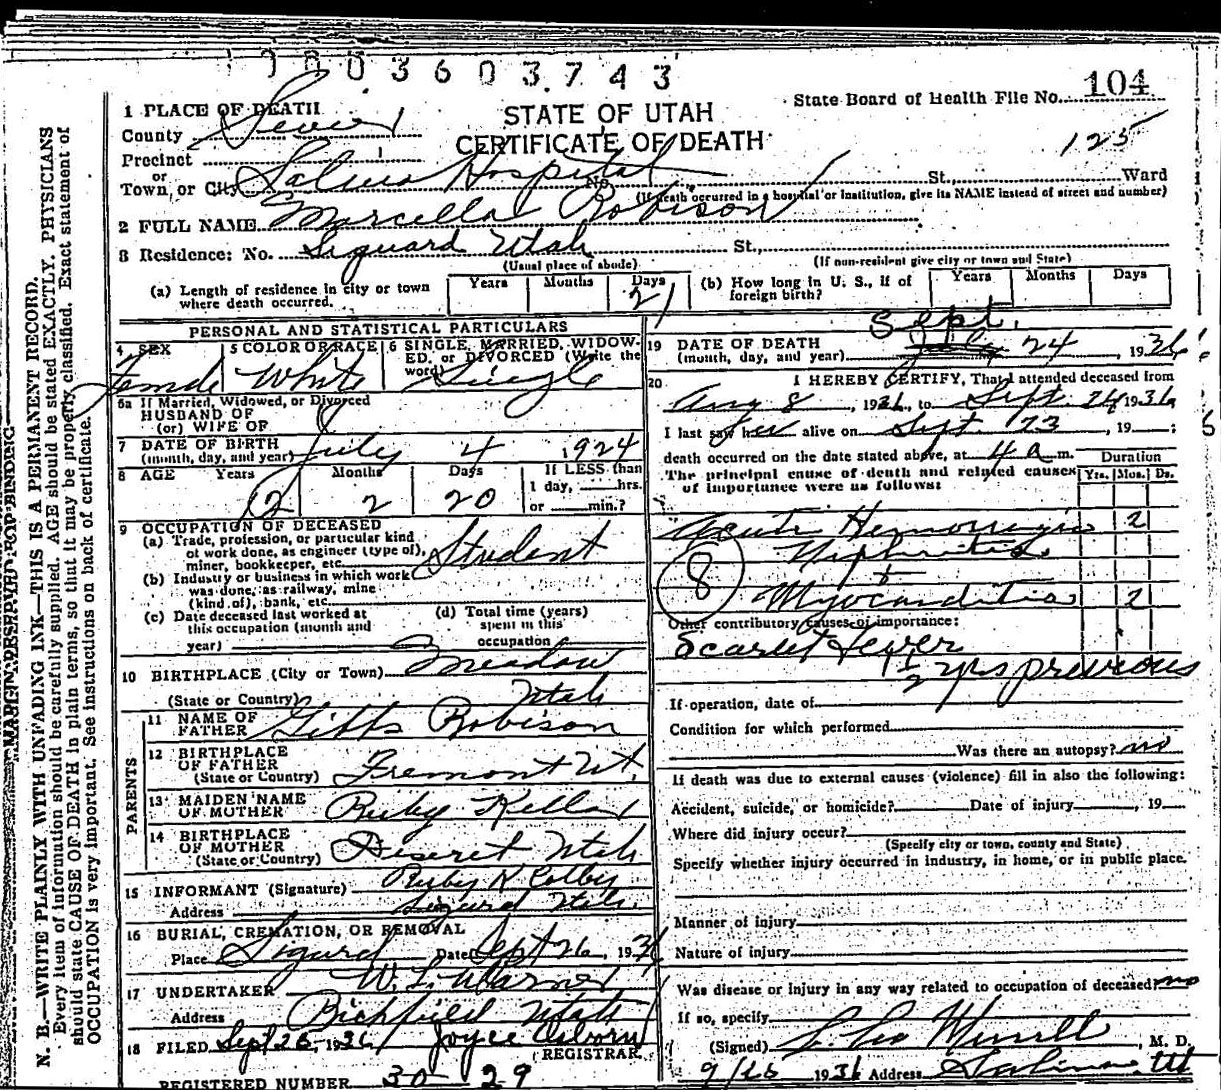 1 0 0 3 6 0 3 7 4 3
State Board of Health File No. 104
125
STATE OF UTAH
CERTIFICATE OF DEATH
1 PLACE OF DEATH
County Sevier
Precinct
or
Town, or City Salina Hospital No. St., Ward
(If death occurred in a hospital or institution, give its NAME instead of street and number)
2 FULL NAME Marcella Robison
3 Residence: No. Siguard Utah St.,
(Usual place of abode) (If non-resident give city or town and State)
(a) Length of residence in city or town where death occurred. Years Months Days 21
(b) How long in U. S., if of foreign birth? Years Months Days
PERSONAL AND STATISTICAL PARTICULARS
4 SEX Female
5 COLOR OR RACE White
6 SINGLE, MARRIED, WIDOWED, or DIVORCED (Write the word) Single
6a If Married, Widowed, or Divorced
HUSBAND OF
(or) WIFE OF
7 DATE OF BIRTH
(month, day, and year) July 4 1924
8 AGE Years 12 Months 2 Days 20 If LESS than
1 day, hrs.
or min.?
9 OCCUPATION OF DECEASED
(a) Trade, profession, or particular kind
of work done, as engineer (type of),
miner, bookkeeper, etc. Student
(b) Industry or business in which work
was done, as railway, mine
(kind of), bank, etc.
(c) Date deceased last worked at
this occupation (month and
year)
(d) Total time (years)
spent in this
occupation
10 BIRTHPLACE (City or Town) Meadow
(State or Country) Utah
PARENTS
11 NAME OF
FATHER Gibbs Robison
12 BIRTHPLACE
OF FATHER
(State or Country) Fremont Ut.
13 MAIDEN NAME
OF MOTHER Ruby Kelly
14 BIRTHPLACE
OF MOTHER
(State or Country) Deseret Utah
15 INFORMANT (Signature) Ruby K Colby
Address Sigurd Utah.
16 BURIAL, CREMATION, OR REMOVAL
Place Sigurd Date Sept 26, 1936
17 UNDERTAKER W. L. Warner
Address Richfield Utah
18 FILED Sept 26, 1936 Joyce Osborn
REGISTRAR.
REGISTERED NUMBER 30 29
Sept.
19 DATE OF DEATH
(month, day, and year) July 24, 1936
20 I HEREBY CERTIFY, That I attended deceased from
Aug 8, 1936, to Sept. 24 1936
I last saw her alive on Sept 23, 19 ;
death occurred on the date stated above, at 4 a m. Duration
The principal cause of death and related causes Yrs. Mos. Ds.
of importance were as follows:
Acute Hemorragic 2
Nephritis
8 &
Myocarditis 2
Other contributory causes of importance:
Scarlet Fever
1/2 yrs previous
If operation, date of
Condition for which performed
Was there an autopsy? no
If death was due to external causes (violence) fill in also the following:
Accident, suicide, or homicide? Date of injury , 19
Where did injury occur?
(Specify city or town, county and State)
Specify whether injury occurred in industry, in home, or in public place.
Manner of injury
Nature of injury
Was disease or injury in any way related to occupation of deceased? no
If so, specify
(Signed) , M. D.
9/26 1936 Address Salina, Ut
MARGIN RESERVED FOR BINDING
N. B.—WRITE PLAINLY WITH UNFADING INK—THIS IS A PERMANENT RECORD.
Every item of information should be carefully supplied. AGE should be stated EXACTLY. PHYSICIANS
should state CAUSE OF DEATH in plain terms, so that it may be properly classified. Exact statement of
OCCUPATION is very important. See instructions on back of certificate.